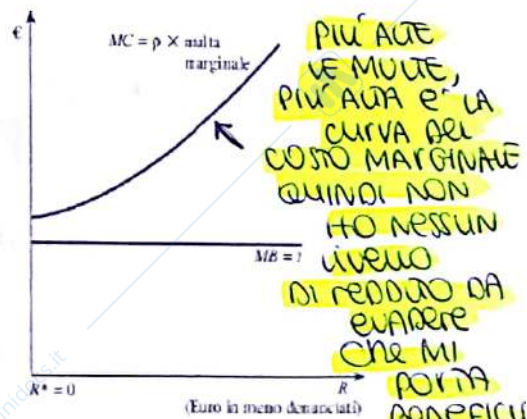 €
MC = ρ × multa
marginale
MB = t
R* = 0
R
(Euro in meno denunciati)
PIU' ALTE
LE MULTE,
PIU' ALTA E' LA
CURVA DEL
COSTO MARGINALE
QUINDI NON
HO NESSUN
LIVELLO
DI REDDITO DA
EVADERE
CHE MI
PORTA
BENEFICI